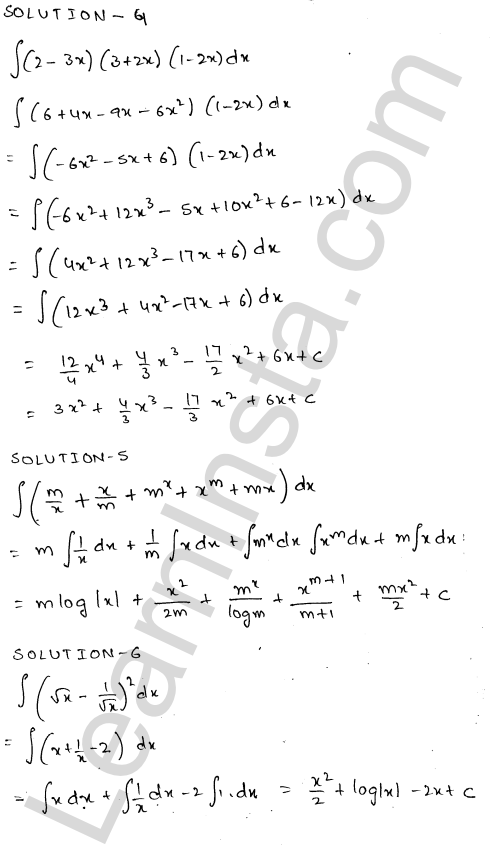 SOLUTION - 4
∫(2 - 3x) (3+2x) (1-2x) dx
∫(6 + 4x - 9x - 6x²) (1-2x) dx
= ∫(-6x² - 5x + 6) (1-2x) dx
= ∫(-6x² + 12x³ - 5x + 10x² + 6 - 12x) dx
= ∫(4x² + 12x³ - 17x + 6) dx
= ∫(12x³ + 4x² - 17x + 6) dx
= 12/4 x⁴ + 4/3 x³ - 17/2 x² + 6x + c
= 3x² + 4/3 x³ - 17/3 x² + 6x + c
SOLUTION - 5
∫(m/x + x/m + mˣ + xᵐ + mx) dx
= m ∫1/x dx + 1/m ∫x dx + ∫mˣ dx ∫xᵐ dx + m∫x dx :
= m log |x| + x²/2m + mˣ/logm + x^(m+1)/m+1 + mx²/2 + c
SOLUTION - 6
∫(√x - 1/√x)² dx
= ∫(x + 1/x - 2) dx
= ∫x dx + ∫1/x dx - 2 ∫1. dx = x²/2 + log|x| - 2x + c
LearnInsta.com